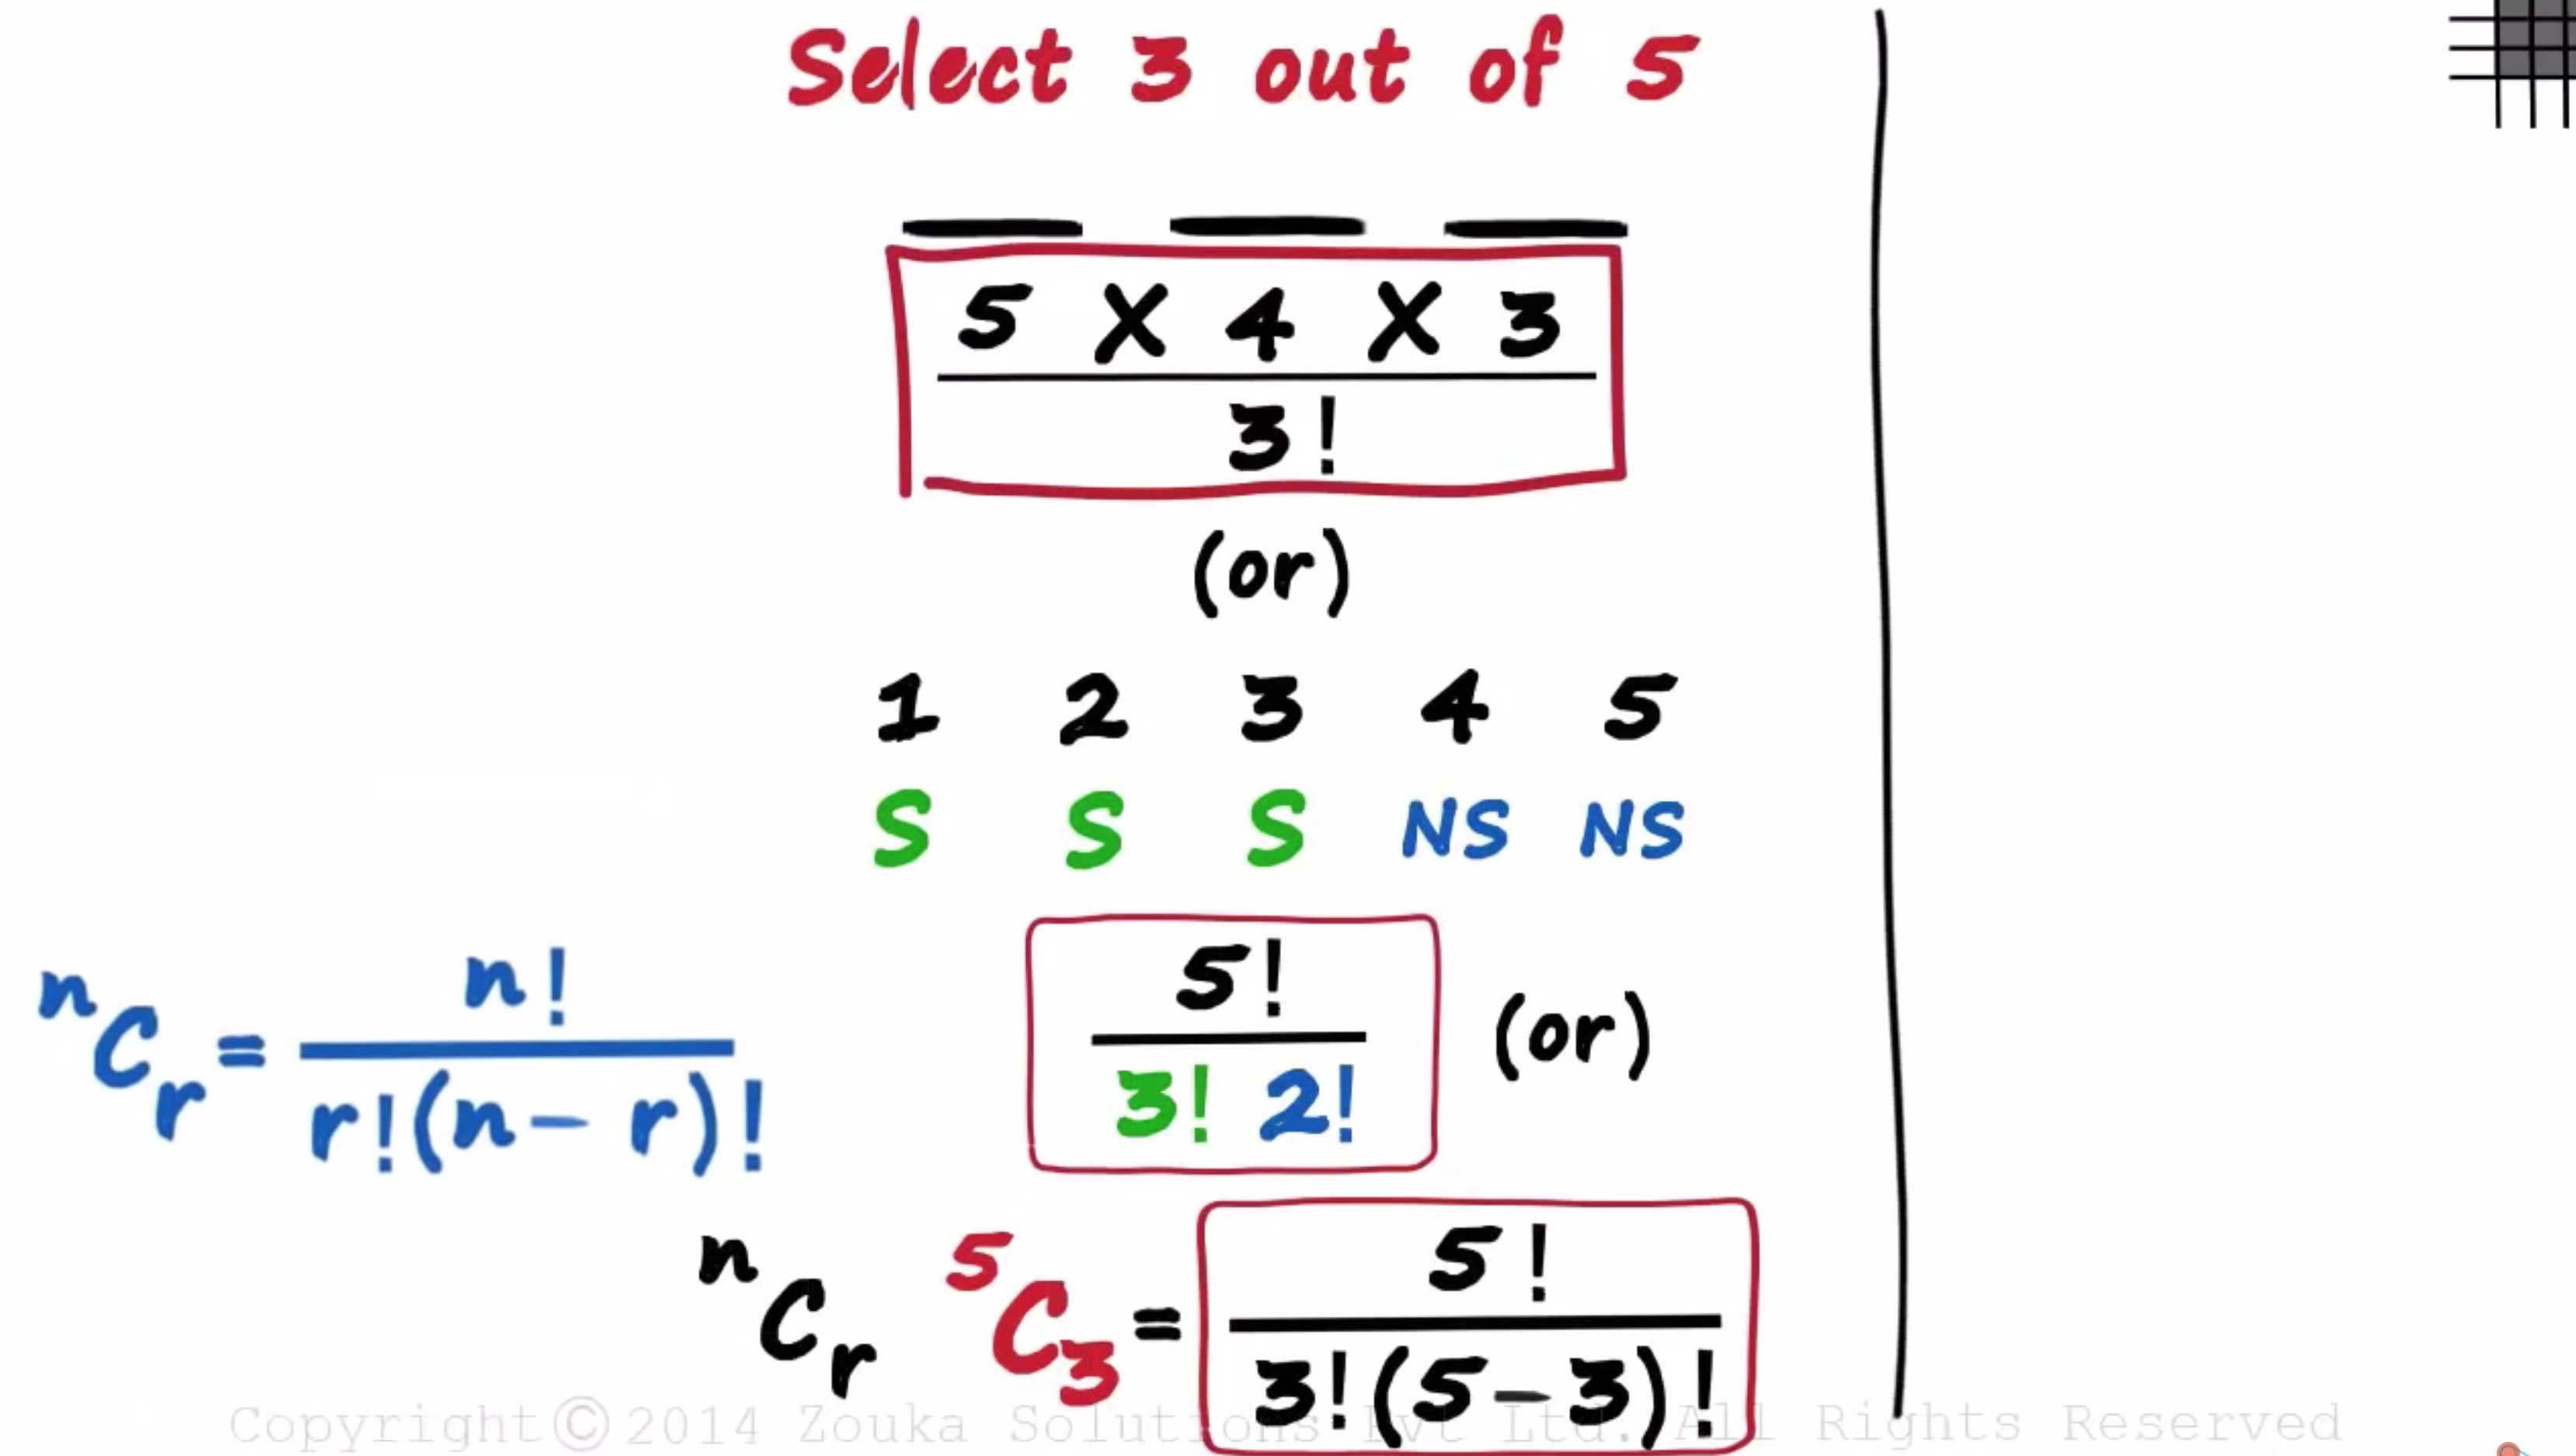 Select 3 out of 5
5 X 4 X 3
3!
(or)
1 2 3 4 5
S S S NS NS
nCr = n! / r!(n - r)!
5! / 3! 2! (or)
nCr 5C3 = 5! / 3!(5-3)!
Copyright © 2014 Zouka Solutions Pvt Ltd. All Rights Reserved